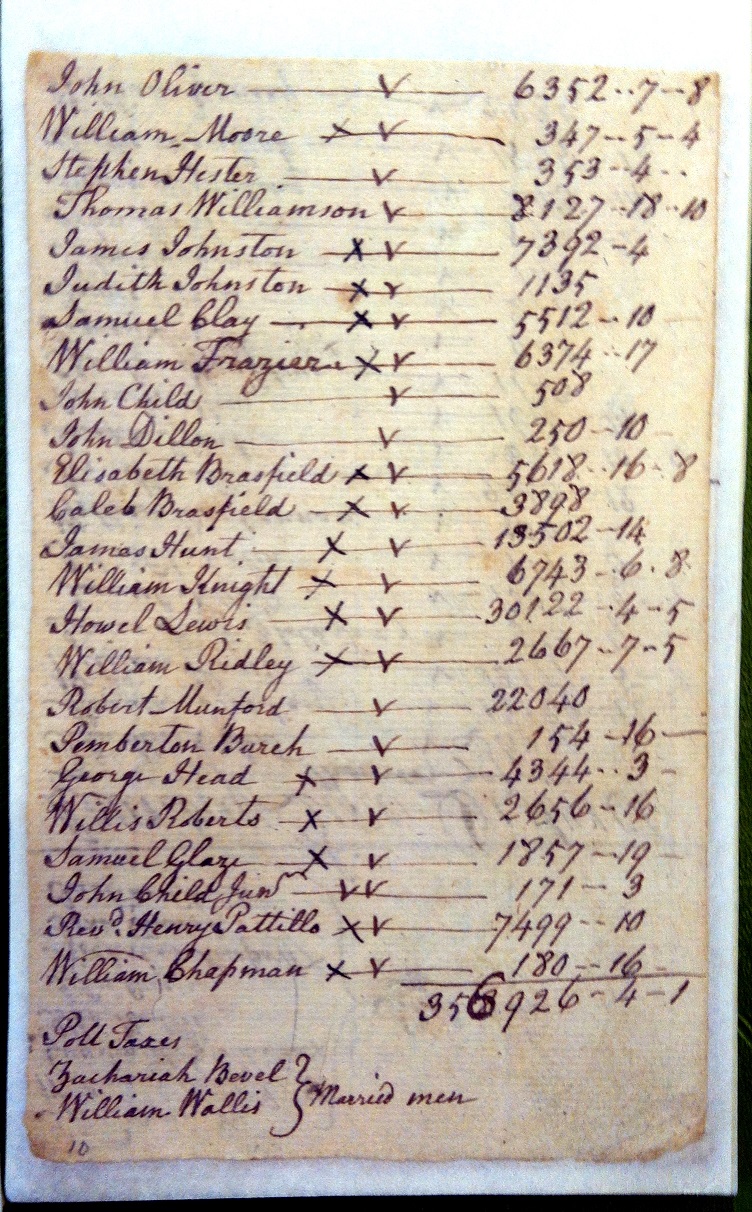 John Oliver — v — 6352..7-8
William Moore x v — 347--5-4
Stephen Hester — v — 353--4--
Thomas Williamson v — 8127--18--10
James Johnston x v — 7392-4
Judith Johnston x v — 1135
Samuel Clay — x v — 5512--10
William Frazier x v — 6374--17
John Child — v — 508
John Dillon — v — 250--10
Elisabeth Brasfield x v — 5618--16-8
Caleb Brasfield — x v — 3898
James Hunt — x v — 13502--14
William Knight x v — 6743--6-8
Howel Lewis — x v — 30122--4-5
William Ridley x v — 2667--7-5
Robert Munford — v — 22040
Pemberton Burch — v — 154-16
George Head x v — 4344..3-
Willis Roberts — x v — 2656-16
Samuel Glaze x v — 1857--19
John Child Junr — vv — 171-3
Revd. Henry Pattillo x v — 7499--10
William Chapman x v — 180--16
926-4-1
Poll Taxes
Zachariah Bevel }
William Wallis } Married men
10